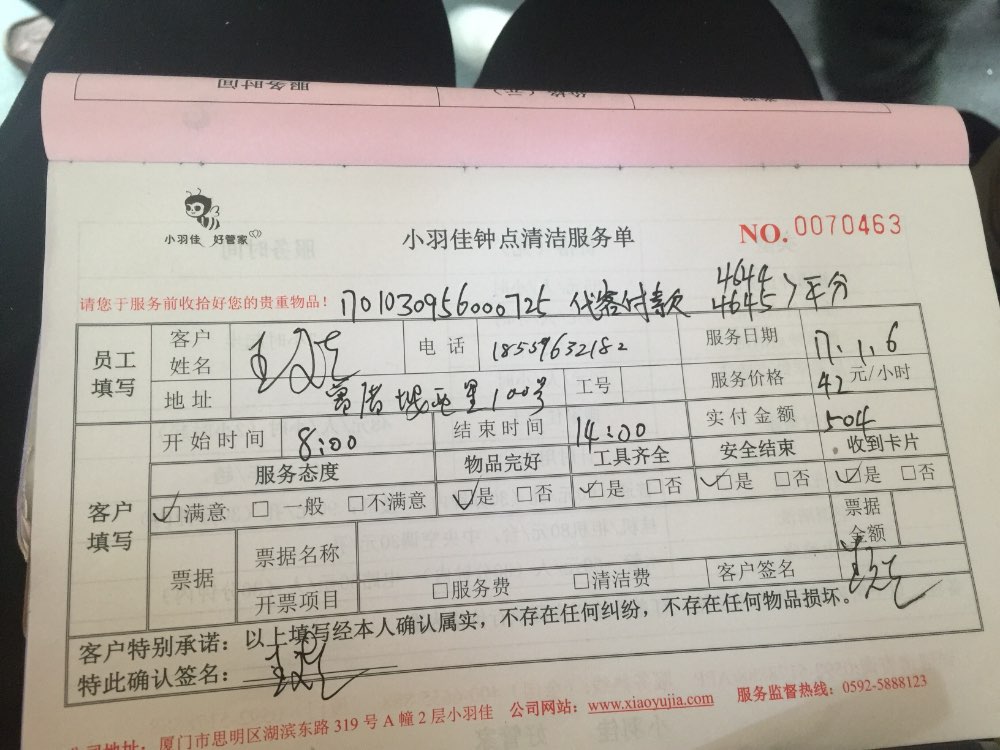 服务时间
小羽佳 好管家
小羽佳钟点清洁服务单
NO. 0070463
请您于服务前收拾好您的贵重物品！
1701030956000725 代客付款 4644 4645 > 平分
员工填写
客户姓名
电话 18559632182
服务日期 17.1.6
地址 里100号
工号
服务价格 42 元/小时
客户填写
开始时间 8:00 结束时间 14:00 实付金额 504
服务态度 物品完好 工具齐全 安全结束 收到卡片
☑满意 □一般 □不满意 ☑是 □否 ☑是 □否 ☑是 □否 ☑是 □否
票据
票据名称
票据金额
开票项目 □服务费 □清洁费 客户签名
客户特别承诺：以上填写经本人确认属实，不存在任何纠纷，不存在任何物品损坏。
特此确认签名：
公司地址：厦门市思明区湖滨东路 319 号 A 幢 2 层小羽佳 公司网站：www.xiaoyujia.com 服务监督热线：0592-5888123